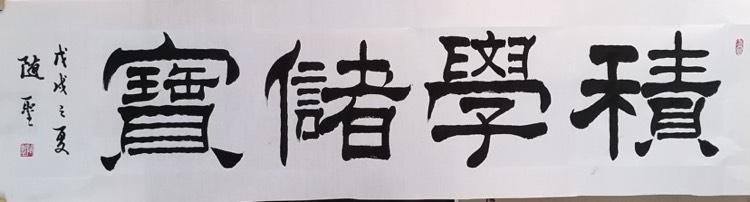 積學儲寶
戊戌之夏
随聖